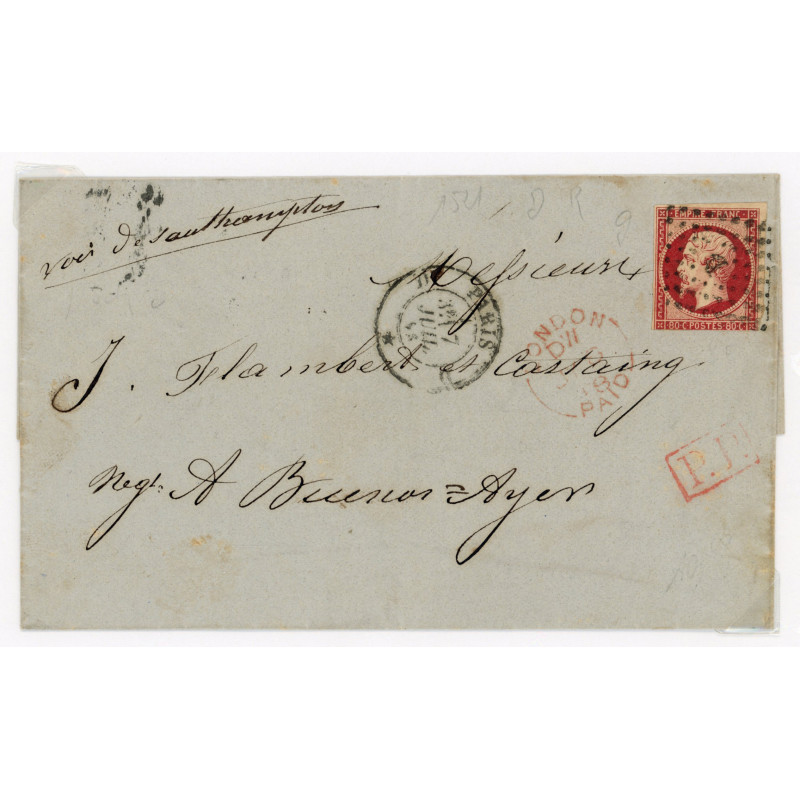 voie de Southampton
Messieurs
J. Flambert et Castaing
Negt. A Buenos=Ayer
EMPIRE FRANC.
80.C POSTES 80.C
PARIS
7
JUIL
LONDON
PAID
P.P.